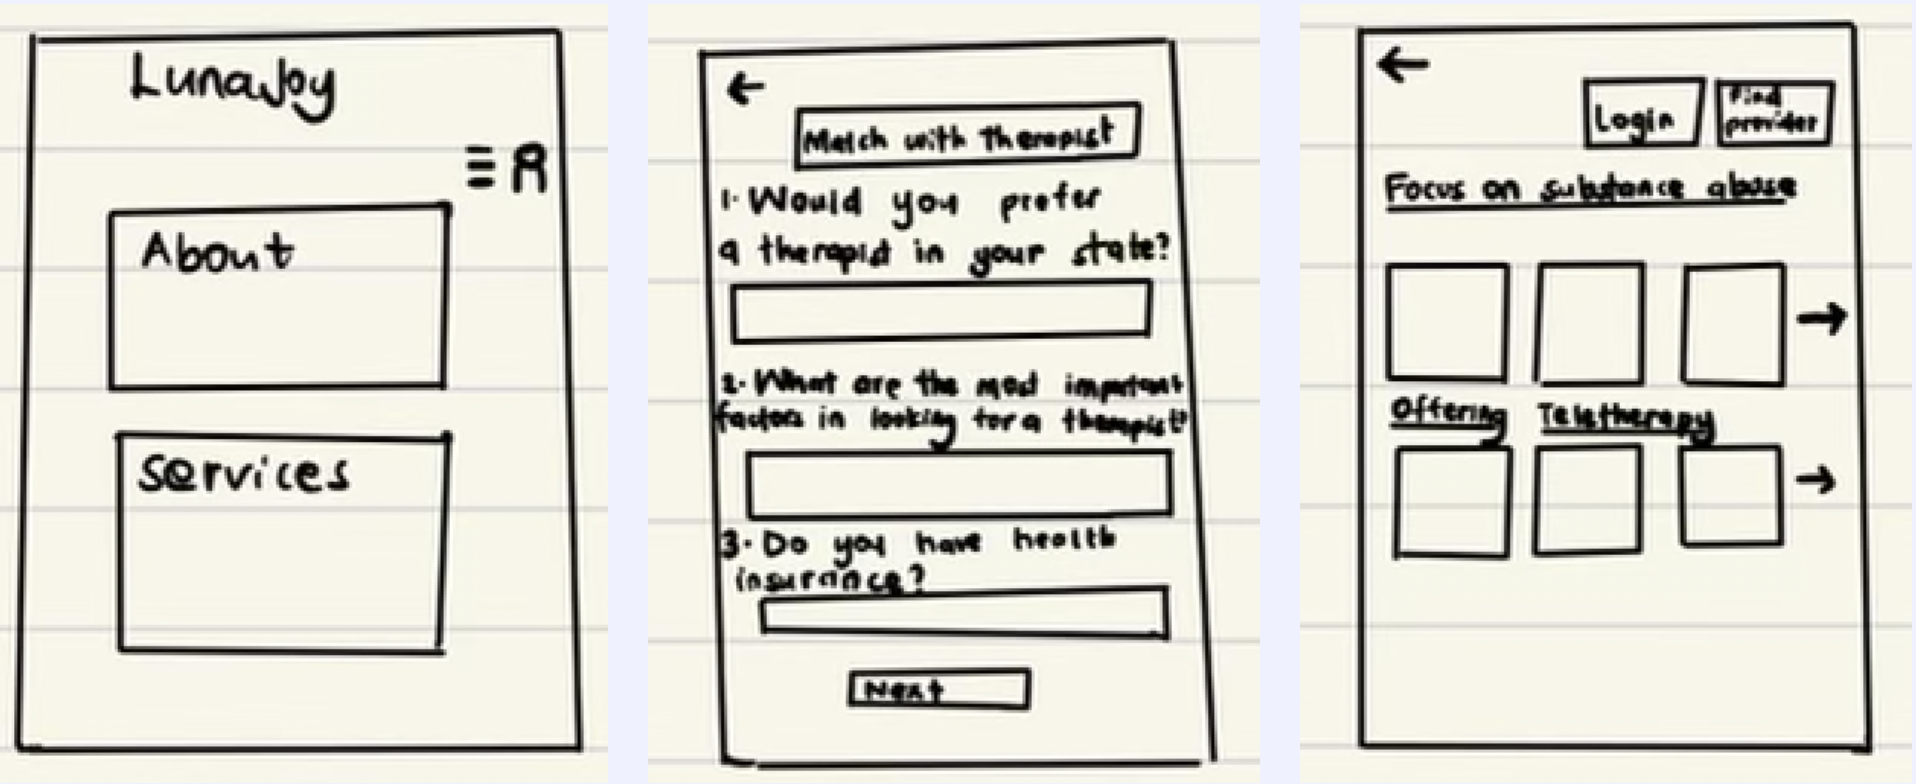 LunaJoy
About
Services
Match with therapist
1. Would you prefer
a therapist in your state?
2. What are the most important
factors in looking for a therapist?
3. Do you have health
insurance?
Next
Login
Find
provider
Focus on substance abuse
Offering Teletherapy